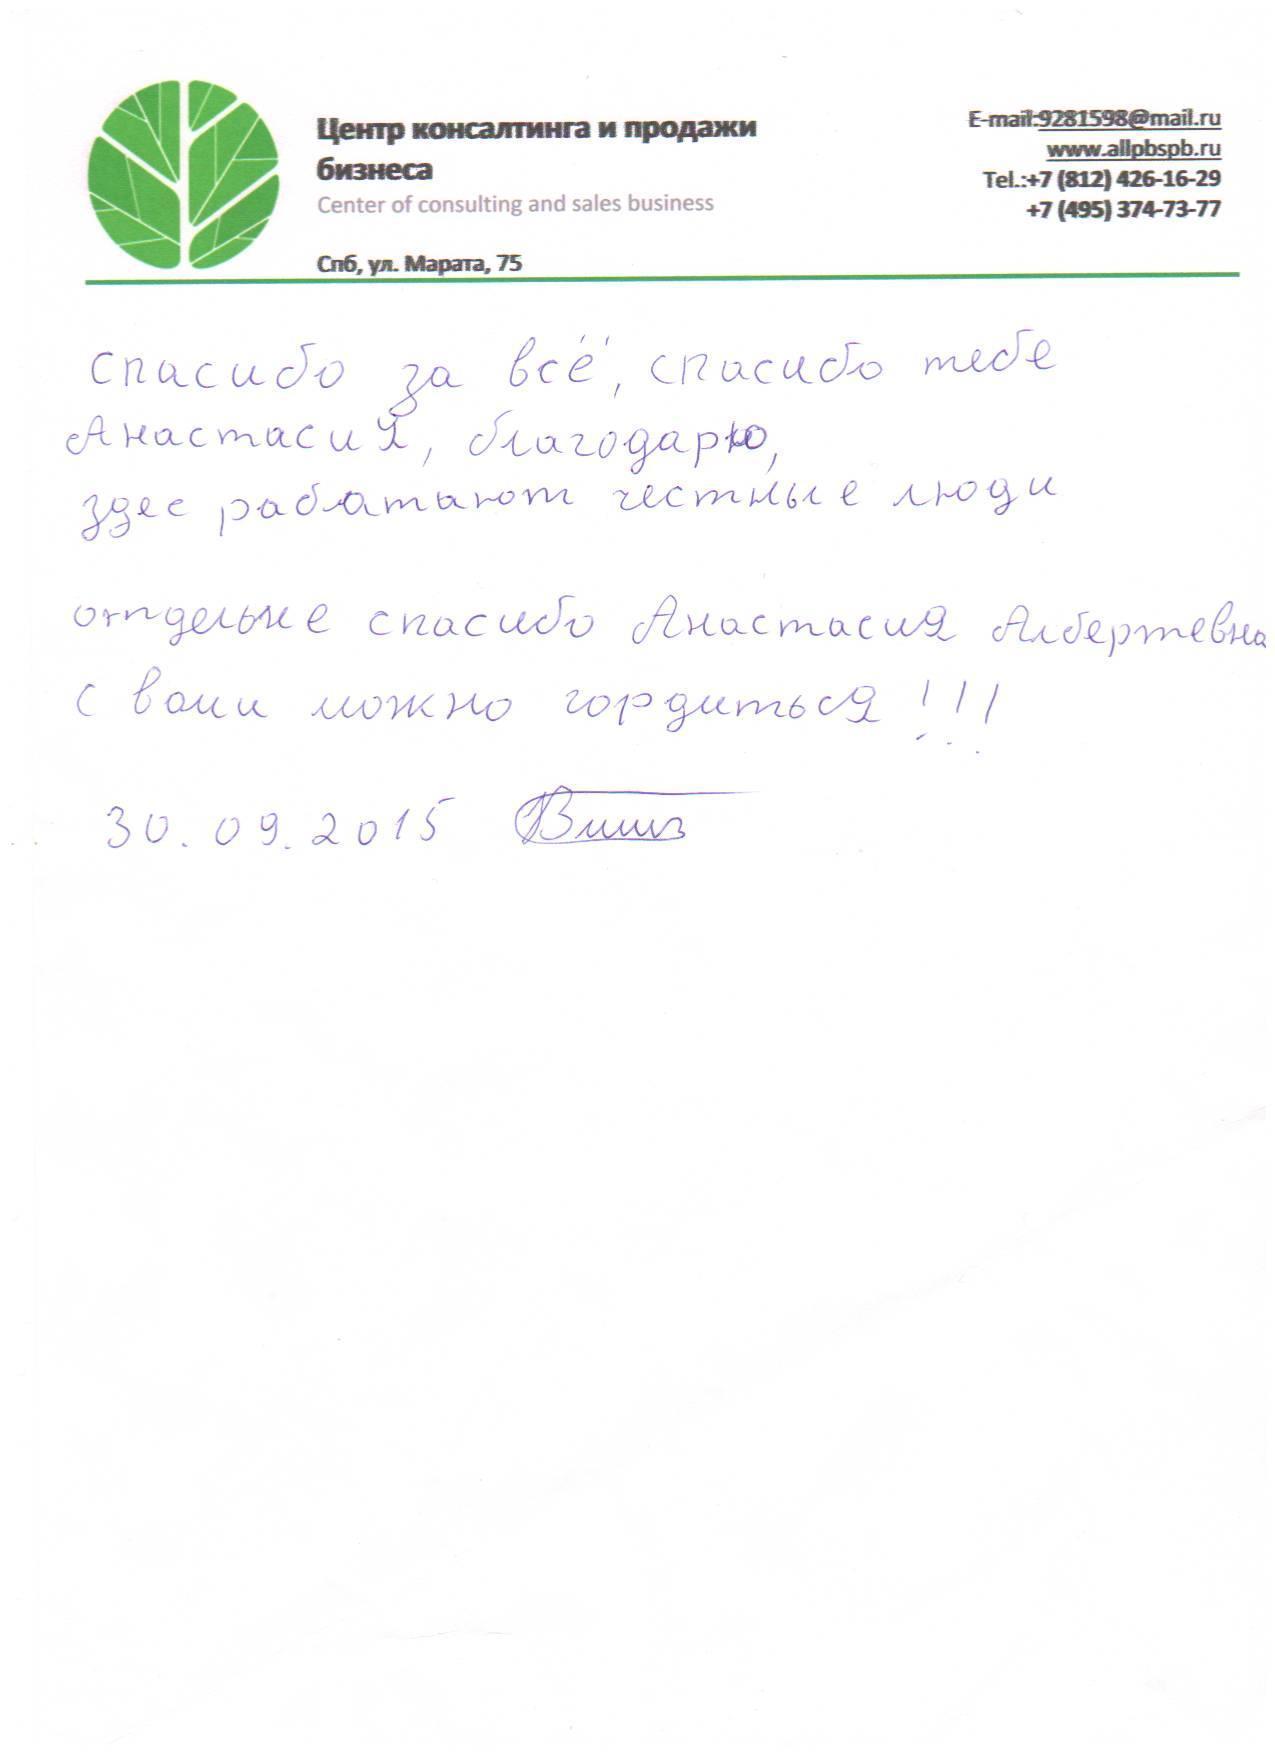 Центр консалтинга и продажи
бизнеса
Center of consulting and sales business
Спб, ул. Марата, 75
E-mail:9281598@mail.ru
www.allpbspb.ru
Tel.:+7 (812) 426-16-29
+7 (495) 374-73-77
Спасибо за всё, спасибо тебе
Анастасия, благодарю,
здес работают честные люди
отдельне спасибо Анастасия Албертевна
с вами можно гордиться!!!
30.09.2015